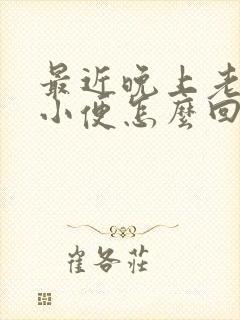 最近晚上老
小便怎麼回
崔各莊